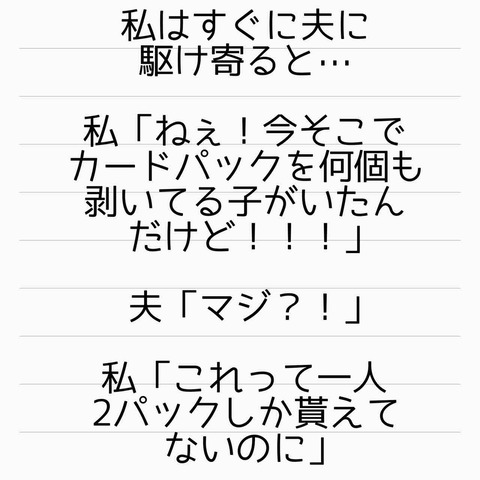 私はすぐに夫に
駆け寄ると…
私「ねぇ！今そこで
カードパックを何個も
剥いてる子がいたん
だけど！！！」
夫「マジ？！」
私「これって一人
2パックしか貰えて
ないのに」